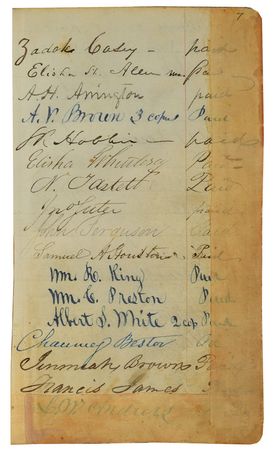 7
Zadok Casey - paid
Elisha H. Allen
A.H. Arrington paid
A.V. Brown 3 copies Paid
paid
Elisha Whittlesey Paid
N. Taslett Paid
Jno. paid
John Ferguson Paid
Samuel A Houston Paid
Wm. R. King Paid
Wm. C. Preston Paid
Albert S. White 2 cop Paid
Chauncey Bestor
Jeremiah Brown
Francis James